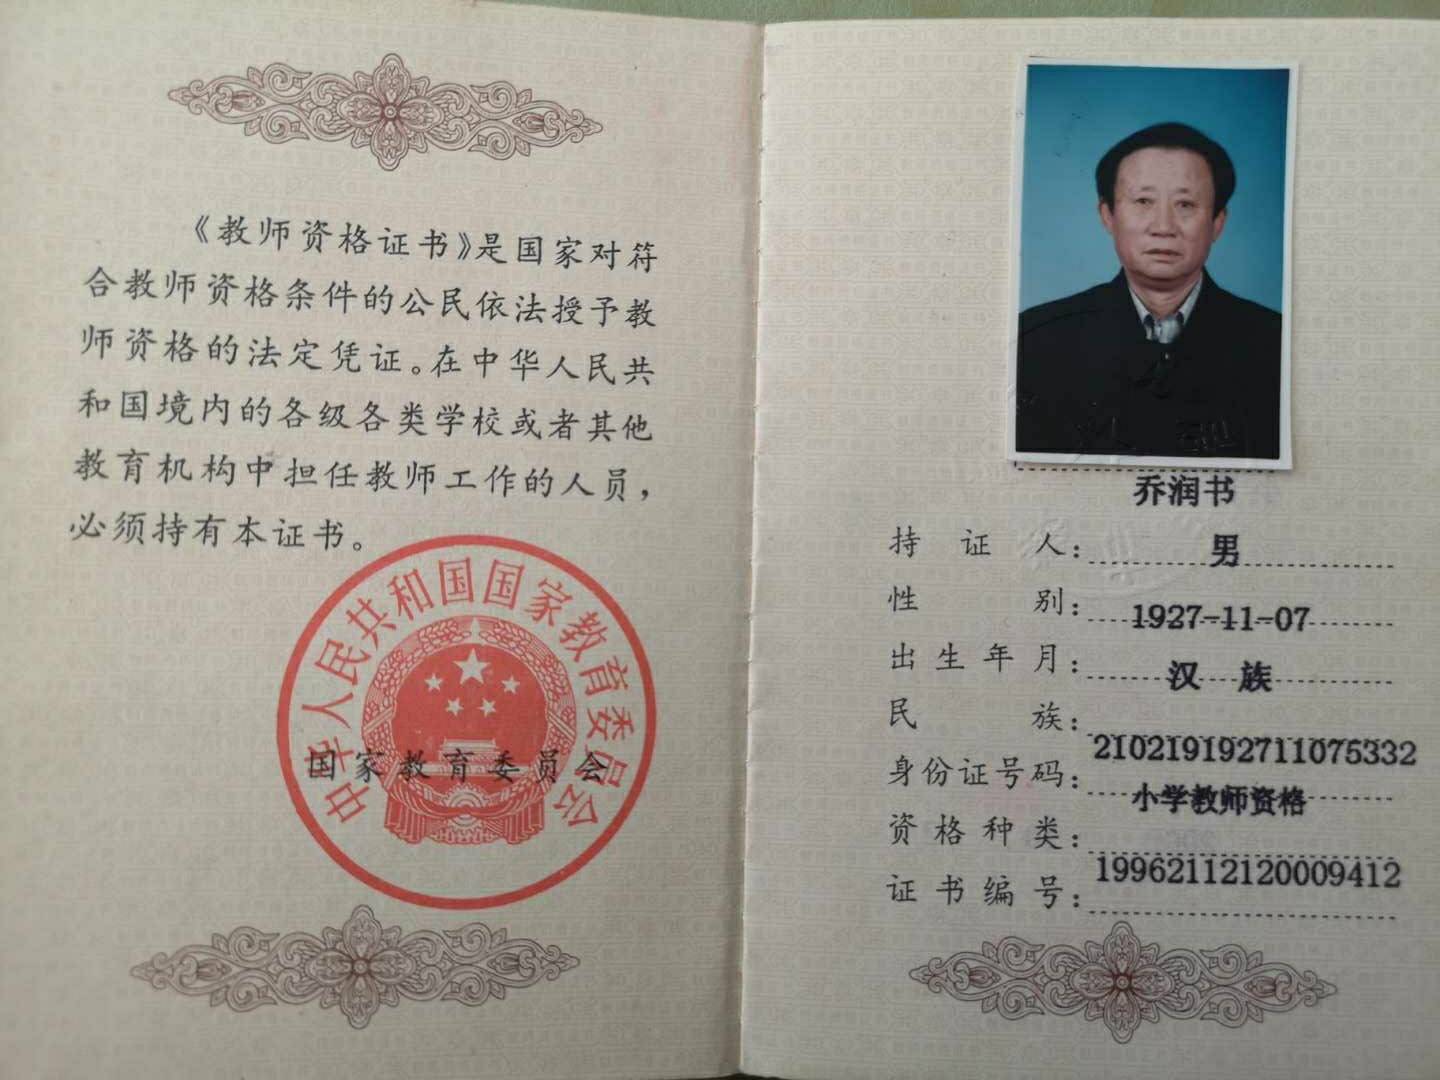 《教师资格证书》是国家对符
合教师资格条件的公民依法授予教
师资格的法定凭证。在中华人民共
和国境内的各级各类学校或者其他
教育机构中担任教师工作的人员，
必须持有本证书。
中华人民共和国国家教育委员会
国家教育委员会
乔润书
持证人：
男
性别：
1927-11-07
出生年月：
汉 族
民族：
210219192711075332
身份证号码：
小学教师资格
资格种类：
19962112120009412
证书编号：